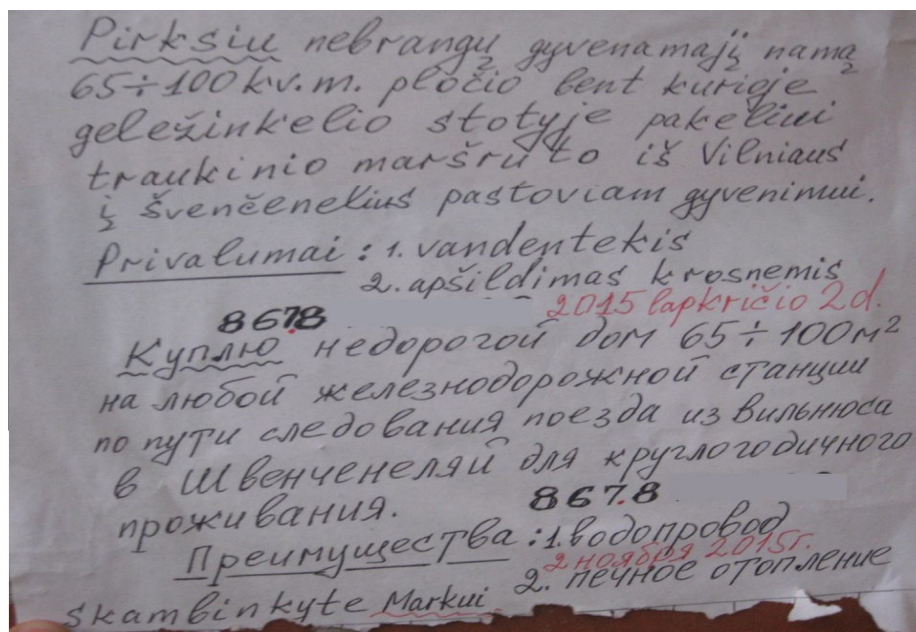 Pirksiu nebrangų gyvenamąjį namą
65÷100 kv.m. pločio bent kurioje
geležinkelio stotyje pakeliui
traukinio maršruto iš Vilniaus
į Švenčenelius pastoviam gyvenimui.
Privalumai: 1. vandentekis
2. apšildimas krosnemis
8 678 2015 lapkričio 2 d.
Куплю недорогой дом 65÷100 м²
на любой железнодорожной станции
по пути следования поезда из Вильнюса
в Швенченеляй для круглогодичного
проживания. 8 678
Преимущества: 1. водопровод
2 ноября 2015г.
2. печное отопление
Skambinkyte Markui